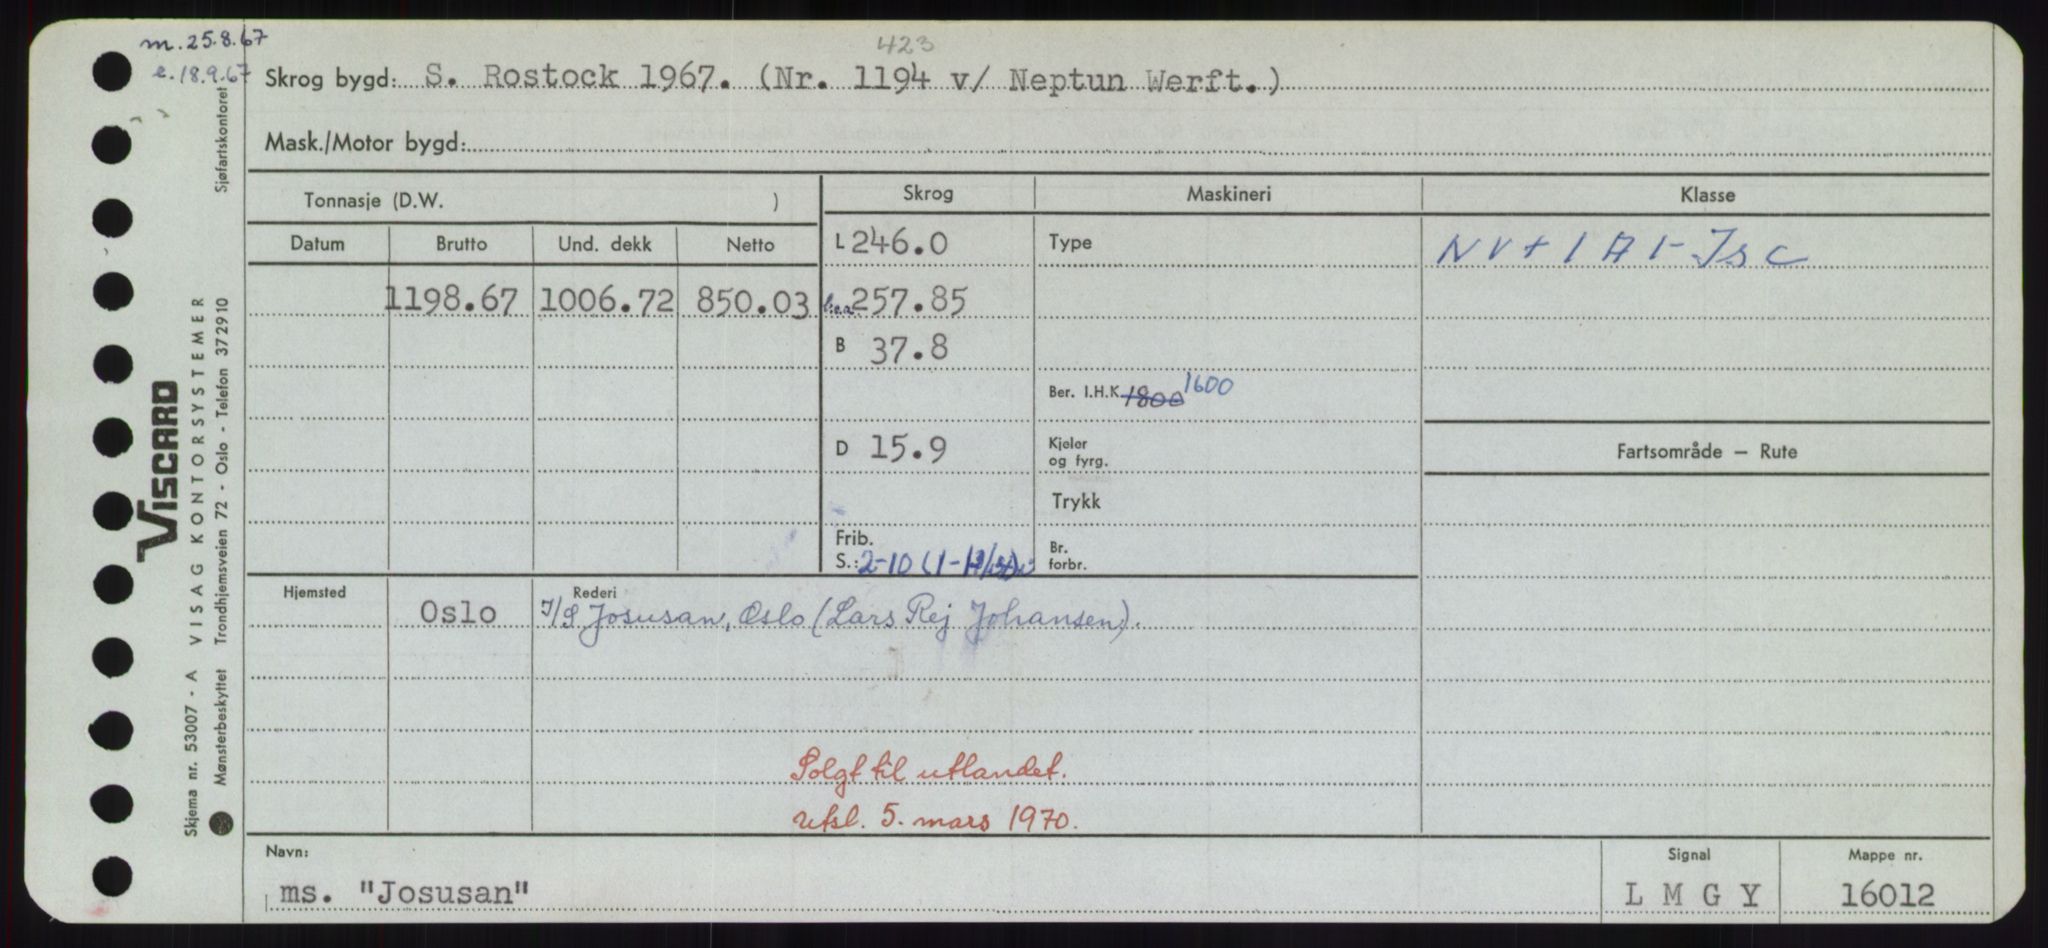 m. 25.8.67
e. 18.9.67
423
Skrog bygd: S. Rostock 1967. (Nr. 1194 v/ Neptun Werft.)
Mask./Motor bygd:
Tonnasje (D.W. )
Skrog
Maskineri
Klasse
Datum
Brutto
Und. dekk
Netto
L 246.0
Type
NV + 1 A 1 - Is C
1198.67 1006.72 850.03
l.o.a. 257.85
B 37.8
Ber. I.H.K. 1800 1600
D 15.9
Kjeler
og fyrg.
Fartsområde — Rute
Trykk
Frib.
S.: 2-10 (1-
Br.
forbr.
Hjemsted
Rederi
Oslo
I/S Josusan, Oslo (Lars Rej Johansen).
Solgt til utlandet.
Utsl. 5. mars 1970.
Navn:
ms. "Josusan"
Signal
L M G Y
Mappe nr.
16012
VISCARD
Skjema nr. 53007 - A VISAG KONTORSYSTEMER
Mønsterbeskyttet Trondhjemsveien 72 - Oslo - Telefon 372910
Sjøfartskontoret